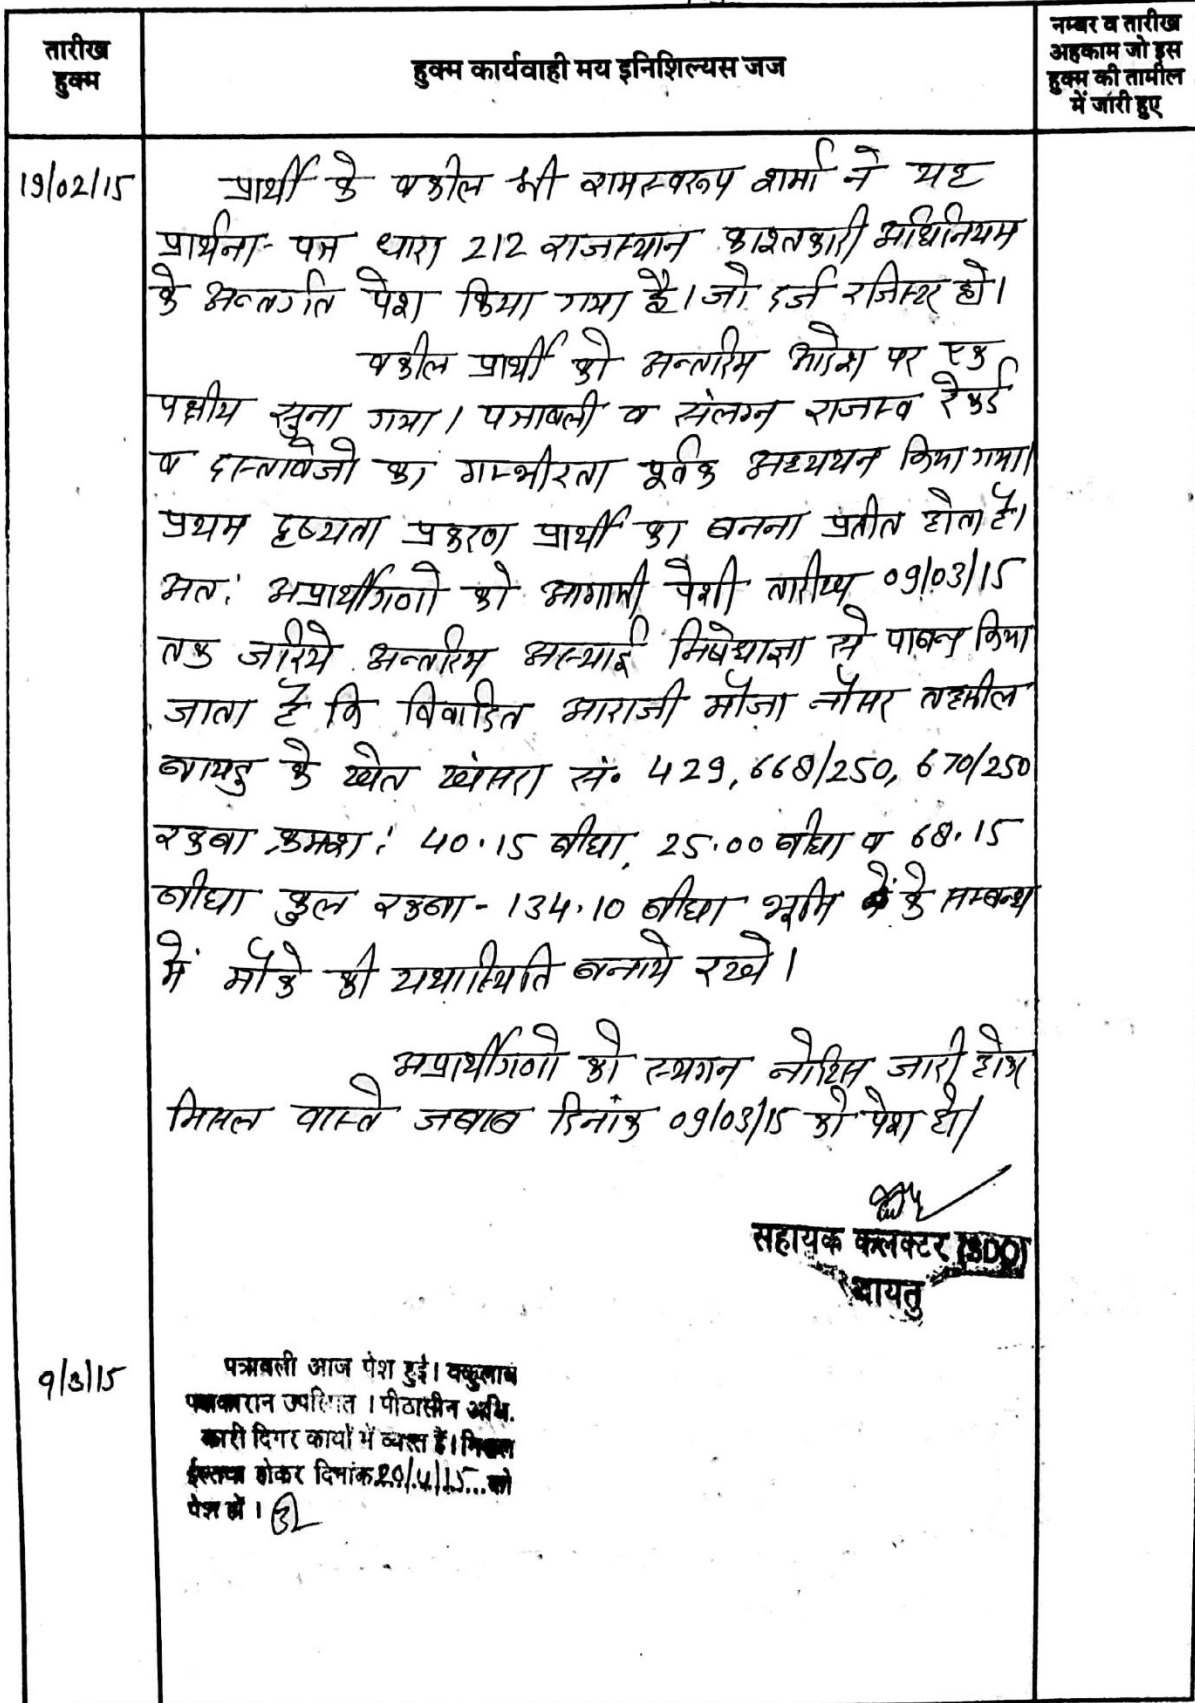 तारीख
हुक्म
हुक्म कार्यवाही मय इनिशिल्यस जज
नम्बर व तारीख
अहकाम जो इस
हुक्म की तामील
में जारी हुए
19/02/15
प्रार्थी के वकील श्री रामस्वरूप शर्मा ने यह
प्रार्थना-पत्र धारा 212 राजस्थान काश्तकारी अधिनियम
के अन्तर्गत पेश किया गया है। जो दर्ज रजिस्टर हो।
वकील प्रार्थी को अन्तरिम आदेश पर एक
पक्षीय सुना गया। पत्रावली व संलग्न राजस्व रेकर्ड
व दस्तावेजो का गम्भीरता पूर्वक अध्ययन किया गया।
प्रथम दृष्यता प्रकरण प्रार्थी का बनना प्रतीत होता है।
अतः अप्रार्थीगणो को आगामी पेशी तारीख 09/03/15
तक जरिये अन्तरिम अस्थाई निषेधाज्ञा से पाबन्द किया
जाता है कि विवादित आराजी मौजा नौसर तहसील
बायतु के खेत खसरा सं. 429, 668/250, 670/250
रकबा क्रमशः 40.15 बीघा, 25.00 बीघा व 68.15
बीघा कुल रकबा - 134.10 बीघा भूमि के सम्बन्ध
में मौके की यथास्थिति बनाये रखे।
अप्रार्थीगणो को स्थगन नोटिस जारी होकर
मिसल वास्ते जबाब दिनांक 09/03/15 को पेश हो।
सहायक कलक्टर (SDO)
बायतु
9/3/15
पत्रावली आज पेश हुई। वकुलाय
पक्षकारान उपस्थित। पीठासीन अधि.
कारी दिगर कार्यो में व्यस्त है। मिसल
होकर दिनांक 20/4/15... को
पेश हो।